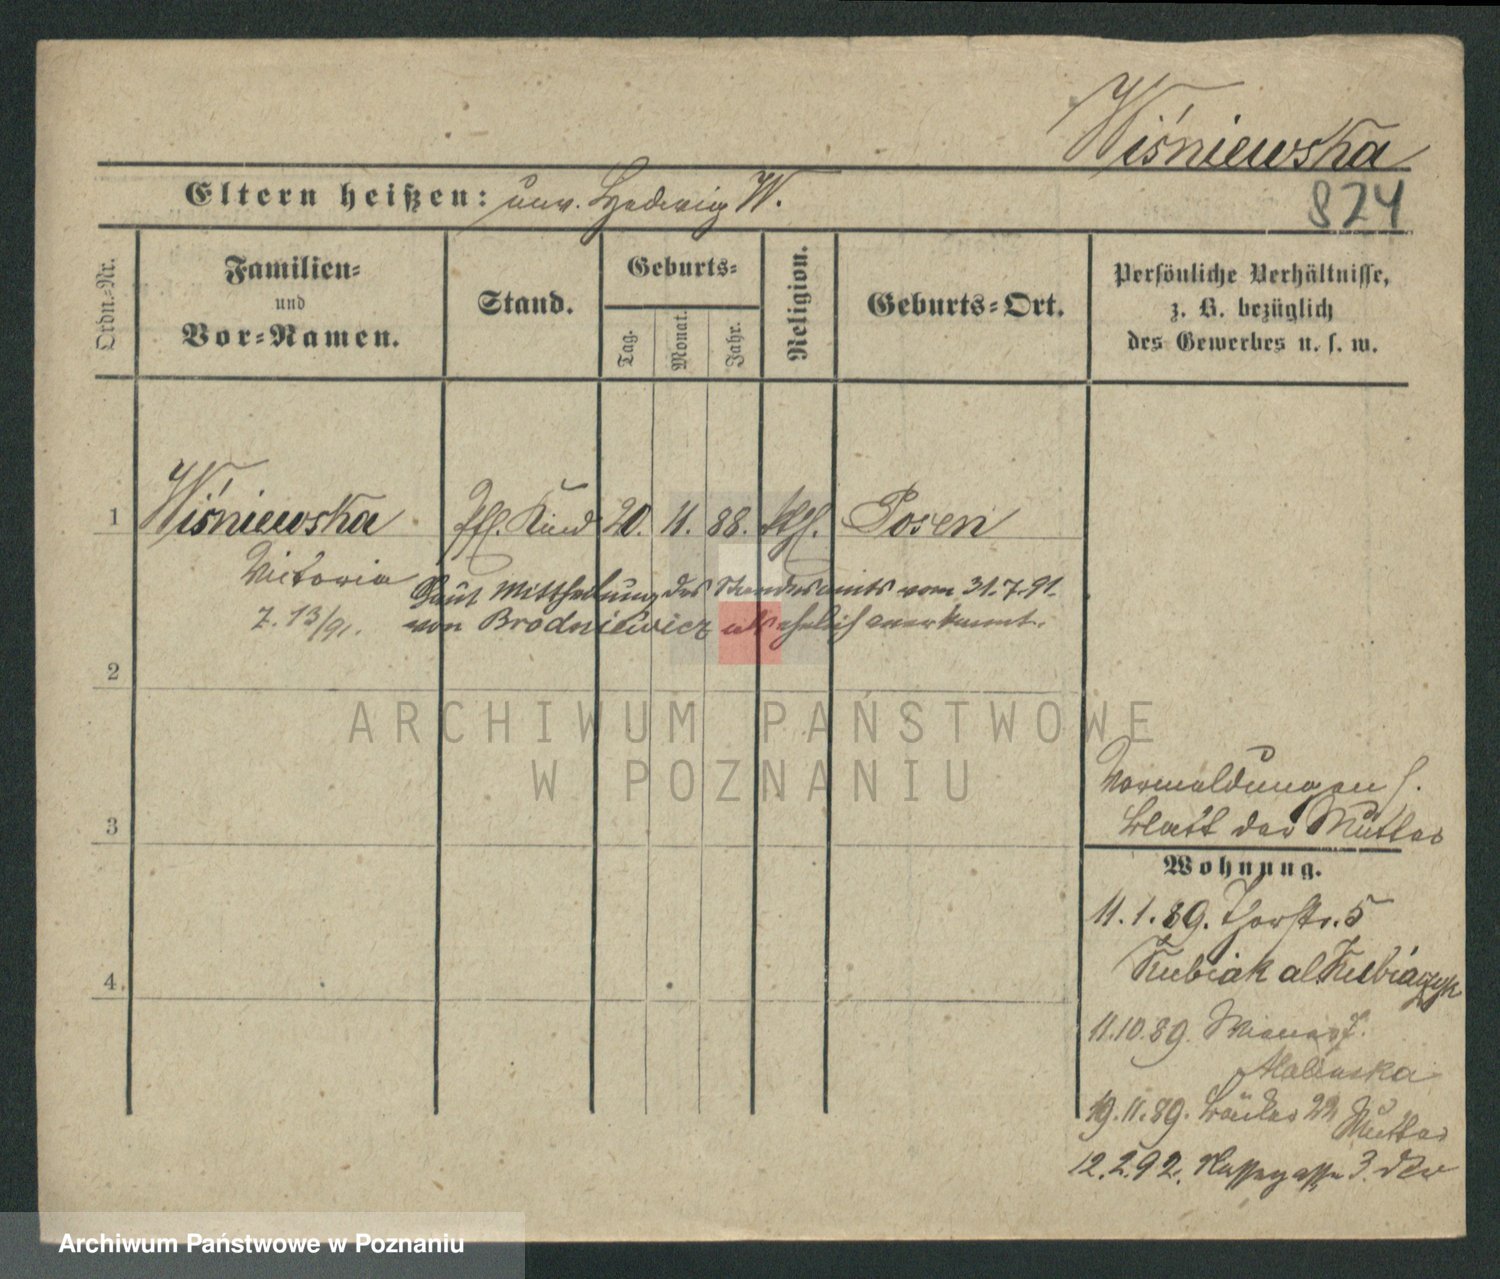 Wiśniewska
824
Eltern heißen: unv. Hedwig W.
Ordn.-Nr.
Familien-
und
Vor-Namen.
Stand.
Geburts-
Tag.
Monat.
Jahr.
Religion.
Geburts-Ort.
Persönliche Verhältnisse,
z. B. bezüglich
des Gewerbes u. s. w.
1 Wiśniewska Pfl. Kind 20. 11. 88. kth. Posen
Victoria
7. 13/91.
Laut Mittheilung des Standesamts vom 31.7.91.
von Brodniewicz als ehelich anerkannt.
2
3
4
ARCHIWUM PAŃSTWOWE
W POZNANIU
Vormeldungen s.
Blatt der Mutter
Wohnung.
11.1.89. Thorstr. 5
Kubiak al Kubiaczyk
11.10.89. 7.
Malinska
19.11.89. Bäcker 22 Mutter
12.2.92. 3.
Archiwum Państwowe w Poznaniu